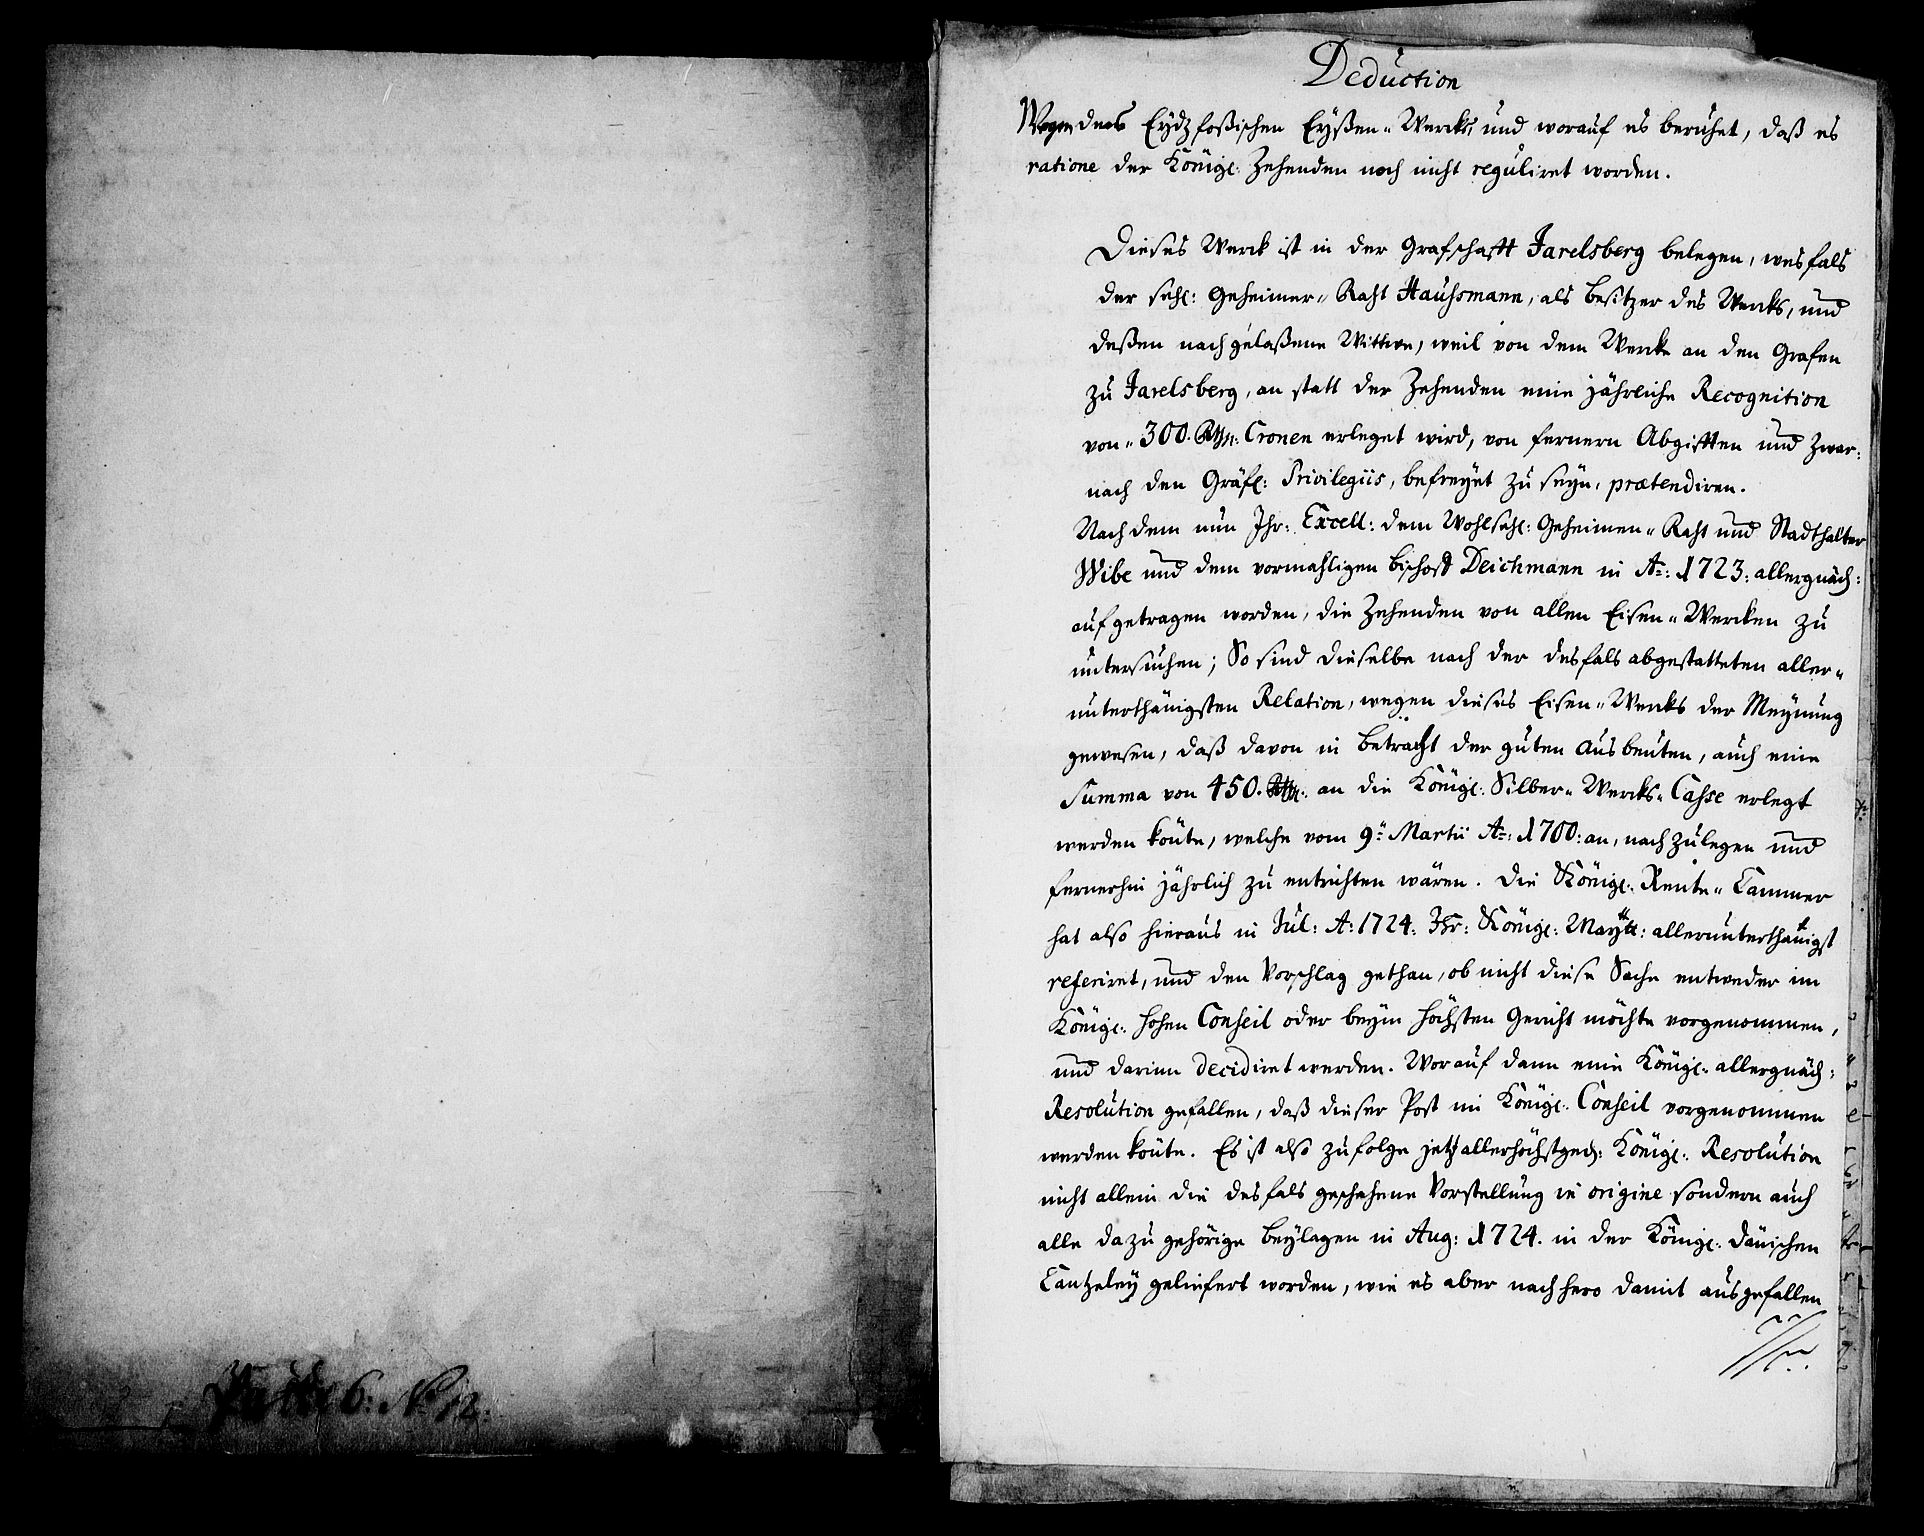 Packe 6: No 12.
Deduction
Wegen des Eydzfoßischen Eyßen-Wercks, und worauf es beruhet, daß es
ratione der Königl: Zehenden noch nicht reguliret worden.
Dieses Werck ist in der Grafschafft Jarelsberg belegen, wesfals
der sehl: Geheimer-Raht Hausmann, als Besitzer des Wercks, und
deßen nachgelaßene Wittwe, weil von dem Wercke an den Grafen
zu Jarelsberg, an statt der Zehenden eine jährliche Recognition
von 300. Rthlr: Cronen erleget wird, von fernern Abgifften und zwar:
nach den Gräfl: Privilegiis, befreyet zu seyn, prætendiren.
Nachdem nun Ihr: Excell: dem Wohlsehl: Geheimen-Raht und Stadthalter
Wibe und dem vormahligen Bischoff Deichmann in Ao: 1723: allergnäd:
aufgetragen worden, die Zehenden von allen Eisen-Wercken zu
untersuchen; So sind dieselbe nach der desfals abgestatteten aller-
unterthänigsten Relation, wegen dieses Eisen-Wercks der Meynung
gewesen, daß davon in Betracht der guten Ausbeuten, auch eine
Summa von 450. Rthlr: an die Königl: Silber-Wercks-Casse erlegt
werden könte, welche vom 9ten Martii Ao: 1700: an, nachzulegen und
fernerhin jährlich zu entrichten wären. Die Königl: Rente-Cammer
hat also hieraus in Jul: A: 1724: Ihr: Königl: Maytt: allerunterthänigst
referiret, und den Vorschlag gethan, ob nicht diese Sache entweder im
Königl: hohen Conseil oder beym höchsten Gericht möchte vorgenommen,
und darinn decidiret werden. Worauf dann eine Königl: allergnäd:
Resolution gefallen, daß dieser Post im Königl: Conseil vorgenommen
werden könte. Es ist also zufolge jetz allerhöchstged: Königl: Resolution
nicht allein die desfals geschehene Vorstellung in origine sondern auch
alle dazu gehörige Beylagen in Aug: 1724. in der Königl: Dänischen
Cantzeley geliefert worden, wie es aber nachhero damit ausgefallen